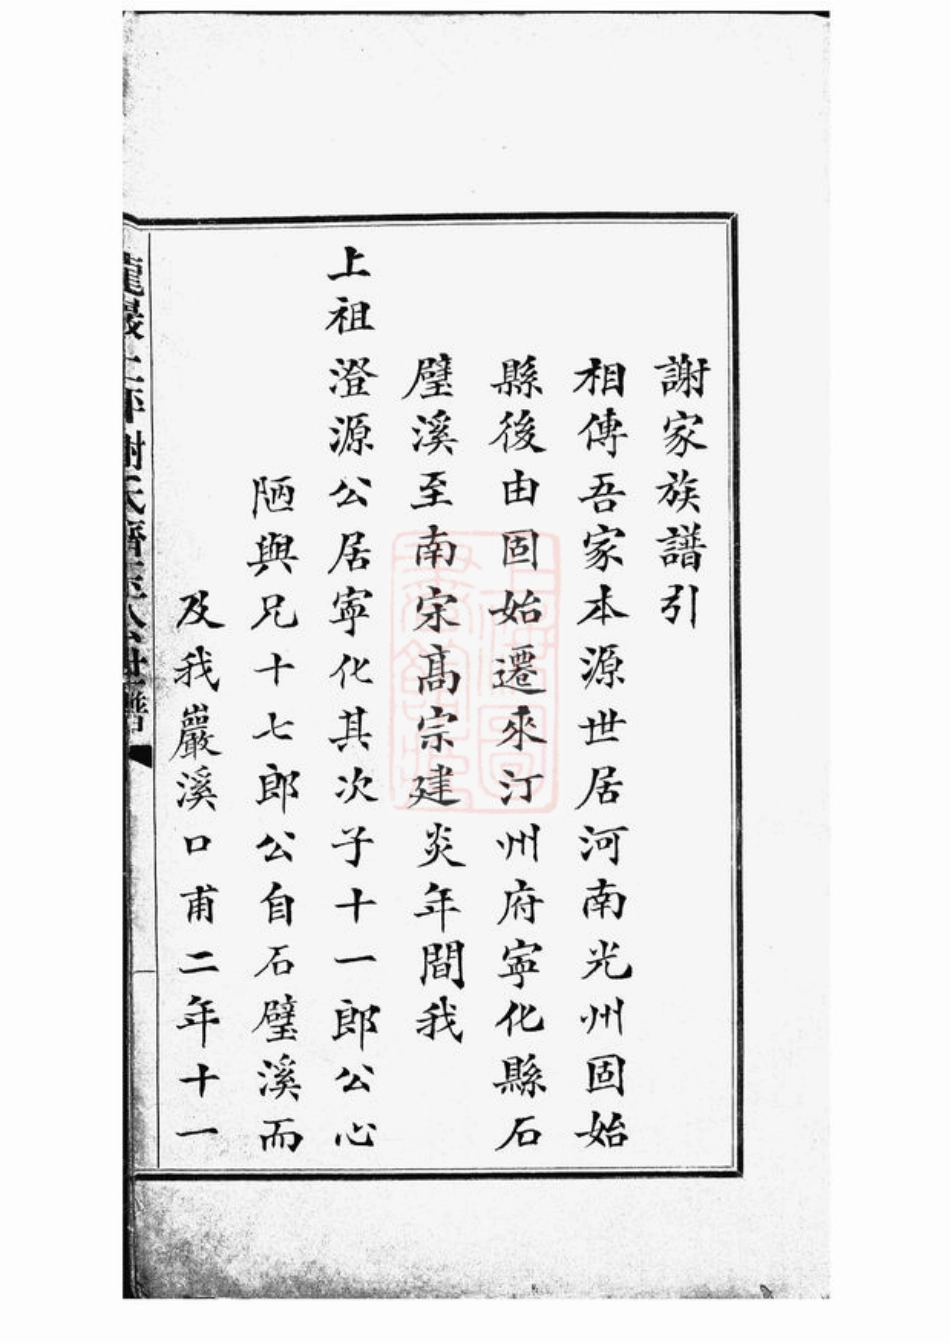 謝家族譜引
相傳吾家本源世居河南光州固始
縣後由固始遷來汀州府寧化縣石
壁溪至南宋高宗建炎年間我
上祖澄源公居寧化其次子十一郎公心
陋與兄十七郎公自石壁溪而
及我巖溪口甫二年十一